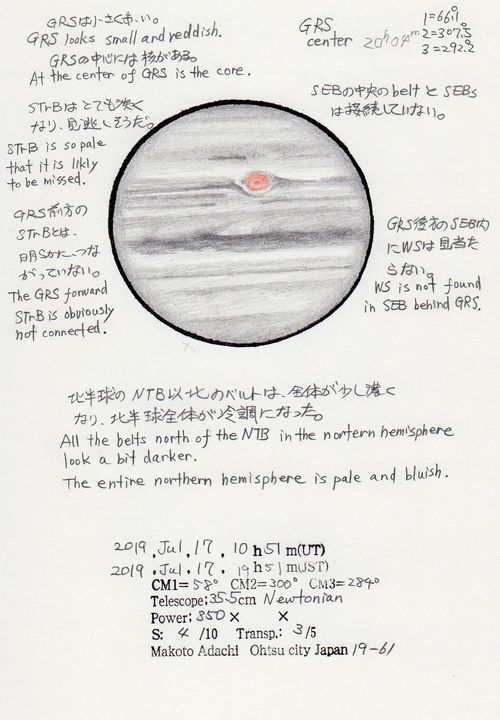 GRSは小さく赤い。
GRS looks small and reddish.
GRSの中心には核がある。
At the center of GRS is the core.
GRS
center 20h04m
1=66.1°
2=307.5°
3=292.2°
SEBの中央のbeltとSEBs
は接続していない。
STrBはとても淡く
なり、見逃しそうだ。
STrB is so pale
that it is likly
to be missed.
GRS前方の
STrBとは、
明らかにつな
がっていない。
The GRS forward
STrB is obviously
not connected.
GRS後方のSEB内
にWSは見当た
らない。
WS is not found
in SEB behind GRS.
北半球のNTB以北のベルトは、全体が少し濃く
なり、北半球全体が冷調になった。
All the belts north of the NTB in the nortern hemisphere
look a bit darker.
The entire northern hemisphere is pale and bluish.
2019, Jul, 17, 10 h 51 m(UT)
2019, Jul, 17, 19 h 51 m(JST)
CM1= 58° CM2= 300° CM3= 284°
Telescope; 35.5cm Newtonian
Power; 350 × ×
S: 4 /10 Transp.: 3/5
Makoto Adachi Ohtsu city Japan 19-61